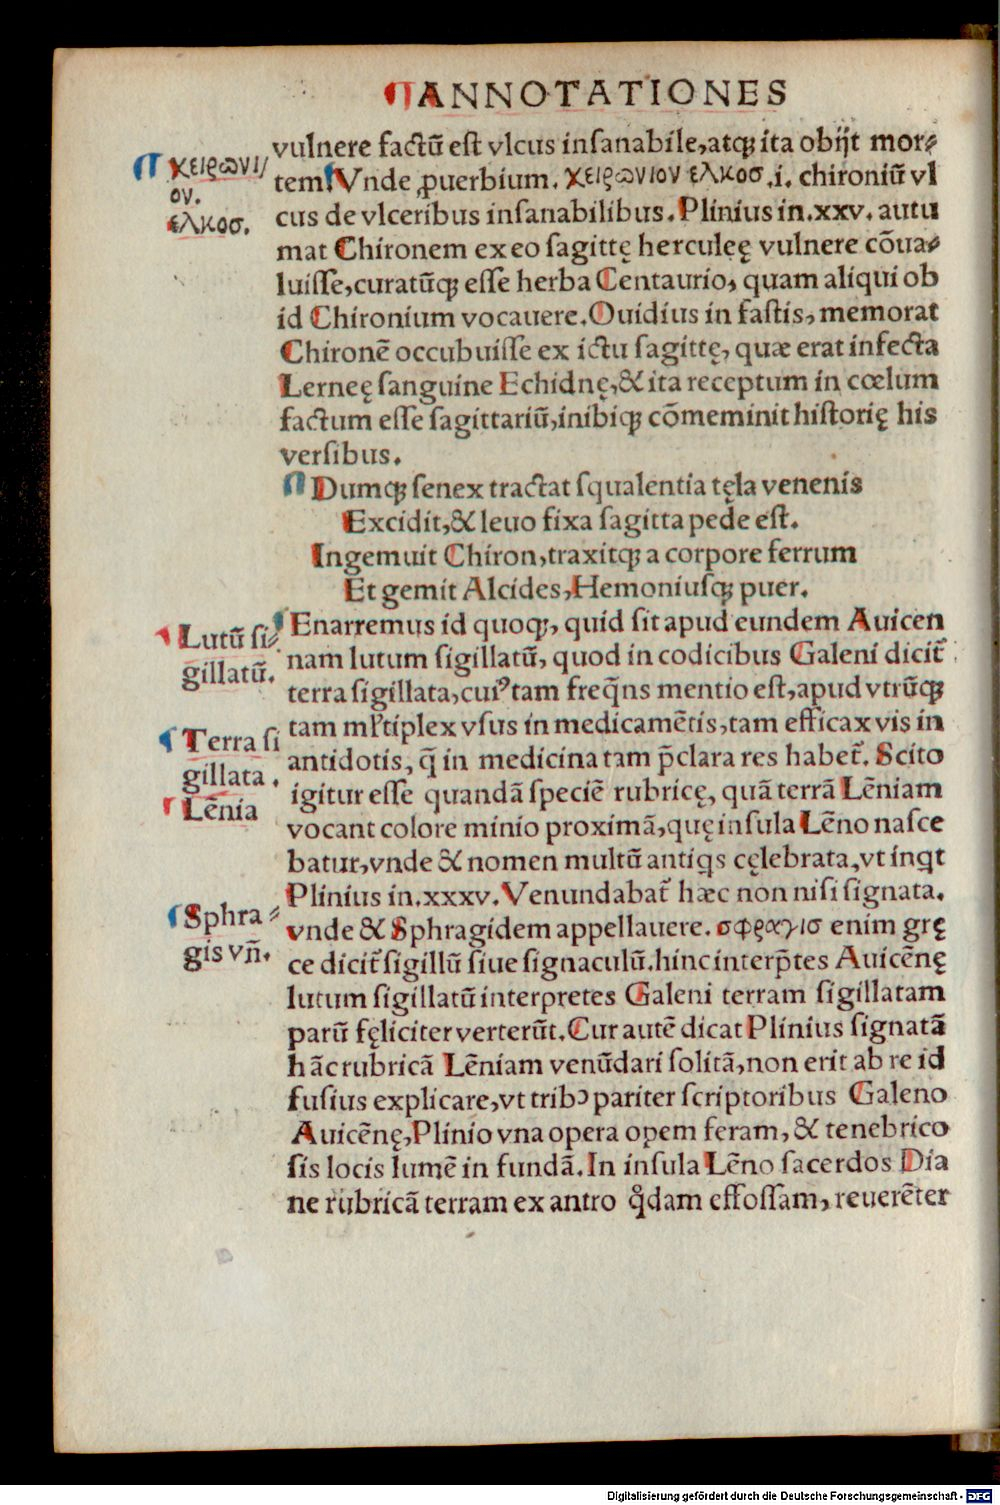 ¶ANNOTATIONES
vulnere factū est vlcus insanabile,atqꝫ ita obijt mor⸗
tem¶Vnde ꝓuerbium. χειρωνιον ελκοσ.i. chironiū vl
cus de vlceribus insanabilibus.Plinius in.xxv. autu
mat Chironem ex eo sagittę herculeę vulnere cōua⸗
luisse,curatūqꝫ esse herba Centaurio, quam aliqui ob
id Chironium vocauere.Ouidius in fastis, memorat
Chironē occubuisse ex ictu sagittę, quæ erat infecta
Lerneę sanguine Echidnę,& ita receptum in cœlum
factum esse sagittariū,inibiqꝫ cōmeminit historię his
versibus.
¶ Dumqꝫ senex tractat squalentia tęla venenis
Excidit,& leuo fixa sagitta pede est.
Ingemuit Chiron,traxitqꝫ a corpore ferrum
Et gemit Alcides,Hemoniusqꝫ puer.
¶ Enarremus id quoqꝫ, quid sit apud eundem Auicen
nam lutum sigillatū, quod in codicibus Galeni dicit̃
terra sigillata,cuiꝰ tam freq̃ns mentio est,apud vtrūqꝫ
tam ml̃tiplex vsus in medicamētis,tam efficax vis in
antidotis, q̃ in medicina tam p̄clara res habet̃. Scito
igitur esse quandā speciē rubricę, quā terrā Lēniam
vocant colore minio proximā,quę insula Lēno nasce
batur,vnde & nomen multū antiqs cęlebrata,vt inqt
Plinius in.xxxv.Venundabat̃ hæc non nisi signata.
vnde & Sphragidem appellauere. σφραγισ enim grę
ce dicit̃ sigillū siue signaculū.hinc interp̄tes Auicēnę
lutum sigillatū interpretes Galeni terram sigillatam
parū fęliciter verterūt.Cur autē dicat Plinius signatā
hāc rubricā Lēniam venūdari solitā,non erit ab re id
fusius explicare,vt tribꝰ pariter scriptoribus Galeno
Auicēnę,Plinio vna opera opem feram, & tenebrico
sis locis lumē in fundā.In insula Lēno sacerdos Dia
ne rubricā terram ex antro q̊dam effossam, reuerēter
¶ χειρωνι/
ον.
ελκοσ.
¶ Lutū si⸗
gillatū.
¶ Terra si
gillata.
¶ Lēnia
¶ Sphra⸗
gis vñ.
Digitalisierung gefördert durch die Deutsche Forschungsgemeinschaft - DFG